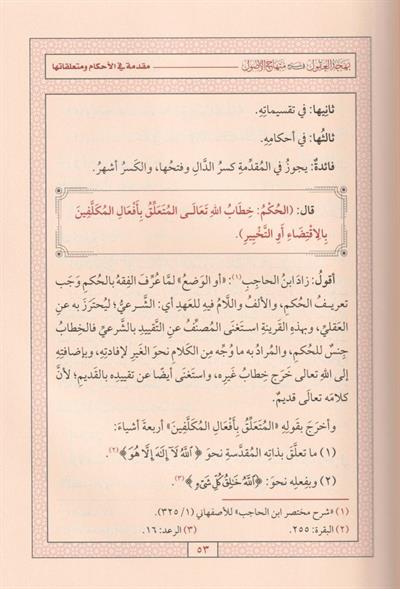 بهجة العقول في شرح منهاج الأصول
مقدمة في الأحكام ومتعلقاتها
ثانِيها: في تقسيماتِهِ.
ثالثُها: في أحكامِهِ.
فائدةٌ: يجوزُ في المُقدِّمةِ كسرُ الدَّالِ وفتحُها، والكَسرُ أشهرُ.
قال: (الحُكْمُ: خِطَابُ اللهِ تَعَالَـى المُتَعَلِّقُ بِأَفْعَالِ المُكَلَّفِينَ
بِالِاقْتِضَاءِ أَوِ التَّخْيِيرِ).
أقولُ: زادَ ابنُ الحاجبِ(١): «أو الوَضعُ» لمَّا عُرِّفَ الفِقهُ بالحُكمِ وَجَب
تعريـفُ الحُكمِ، والألفُ واللَّامُ فيهِ للعَهدِ أي: الشَّـرعيُّ؛ ليُحتَرَزَ به عنِ
العَقليِّ، وبهذِهِ القَرينةِ استَغنَى المُصنِّفُ عنِ التَّقييدِ بالشَّرعيِّ فالخِطابُ
جِنسٌ للحُكمِ، والمُرادُ به ما وُجِّه مِن الكلامِ نحوَ الغَيرِ لإفادتِهِ، وبإضافتِهِ
إلى اللهِ تعالى خَرَج خِطابُ غيرِه، واستَغنَى أيضًا عن تقييدِه بالقَديمِ؛ لأنَّ
كلامَه تعالى قديمٌ.
وأخرَجَ بقَولِهِ «المُتَعَلِّقُ بِأَفْعَالِ المُكَلَّفِينَ» أربعةَ أشياءَ:
(١) ما تعلَّقَ بذاتِه المُقدَّسةِ نحوَ ﴿ٱللَّهُ لَآ إِلَٰهَ إِلَّا هُوَ﴾(٢).
(٢) وبِفِعلِه نحوُ: ﴿ٱللَّهُ خَٰلِقُ كُلِّ شَىْءٍ﴾(٣).
(١) «شرح مختصر ابن الحاجب» للأصفهاني (١/ ٣٢٥).
(٢) البقرة: ٢٥٥.
(٣) الرعد: ١٦.
٥٣